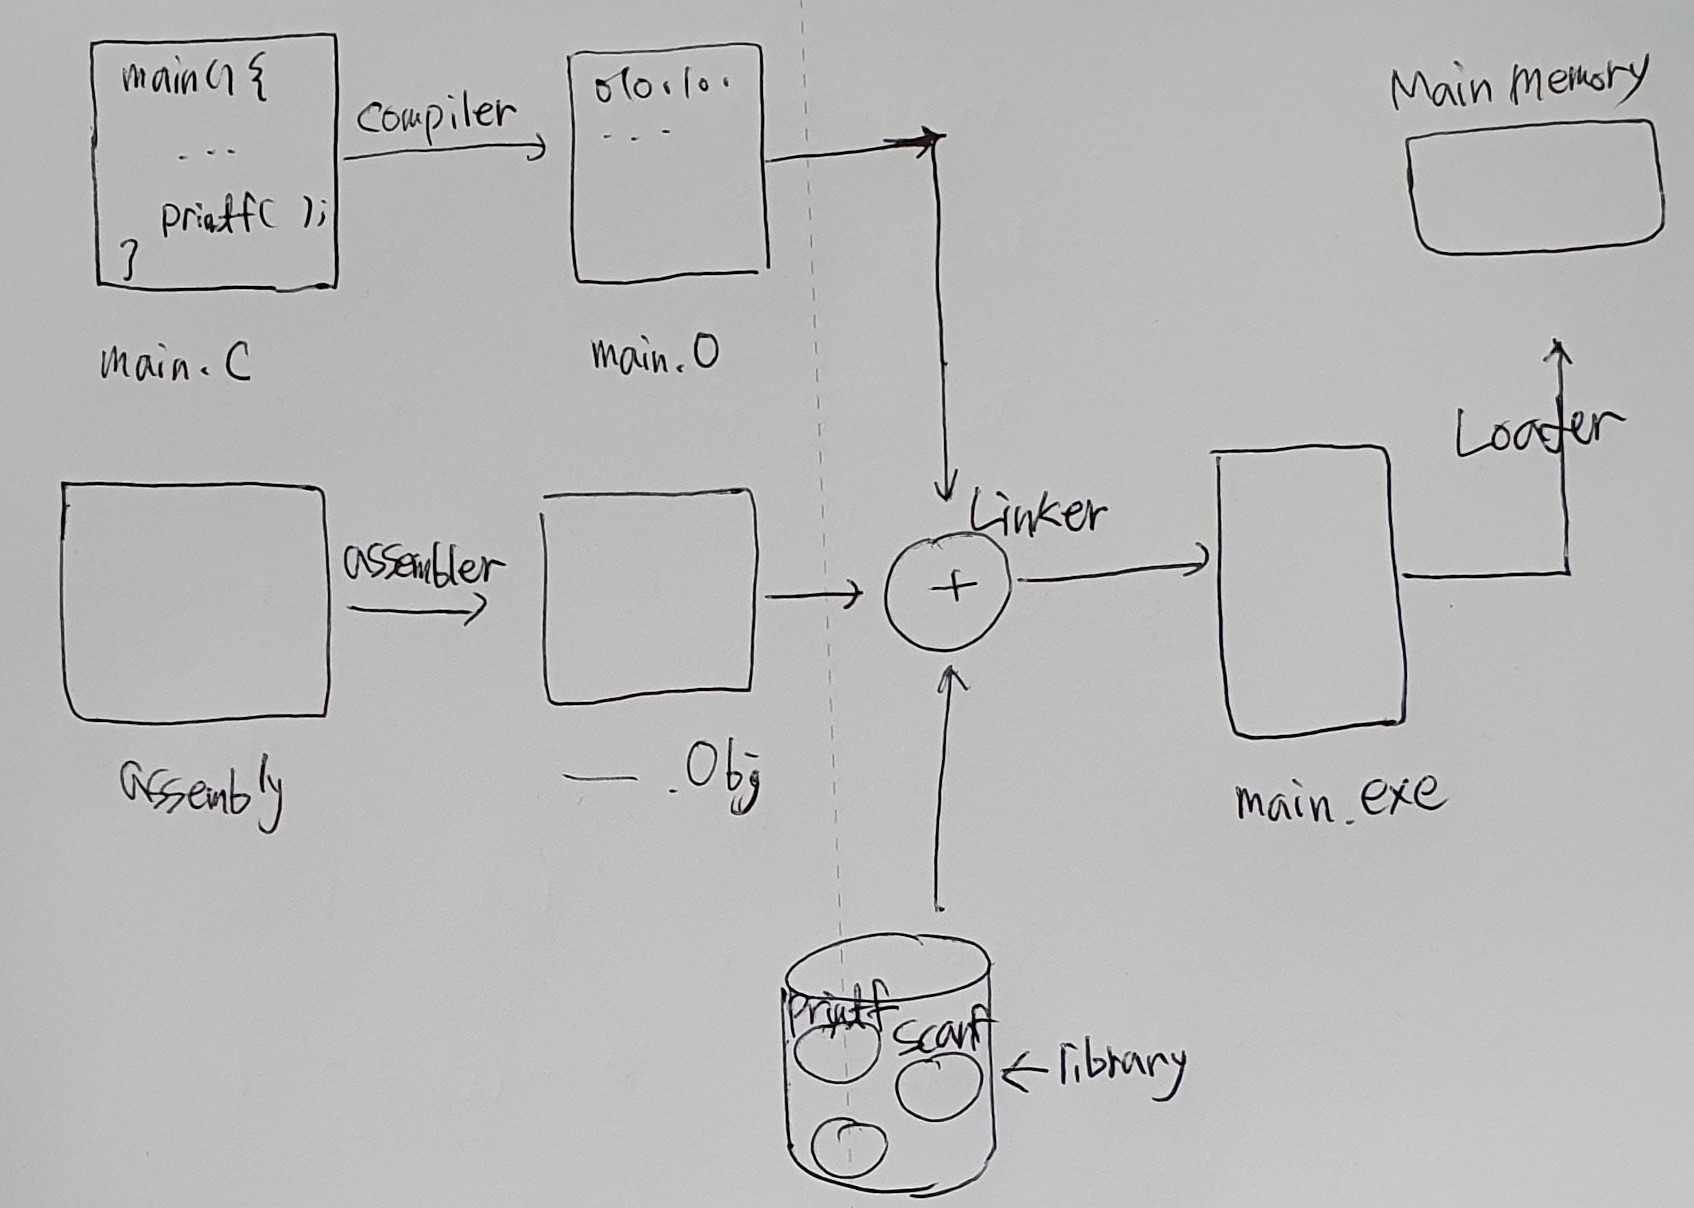 main() {
...
printf( );
}
main.C
compiler
010.10.
...
main.O
Main Memory
Loader
assembly
assembler
— .Obj
Linker
+
main.exe
printf
scanf
← library